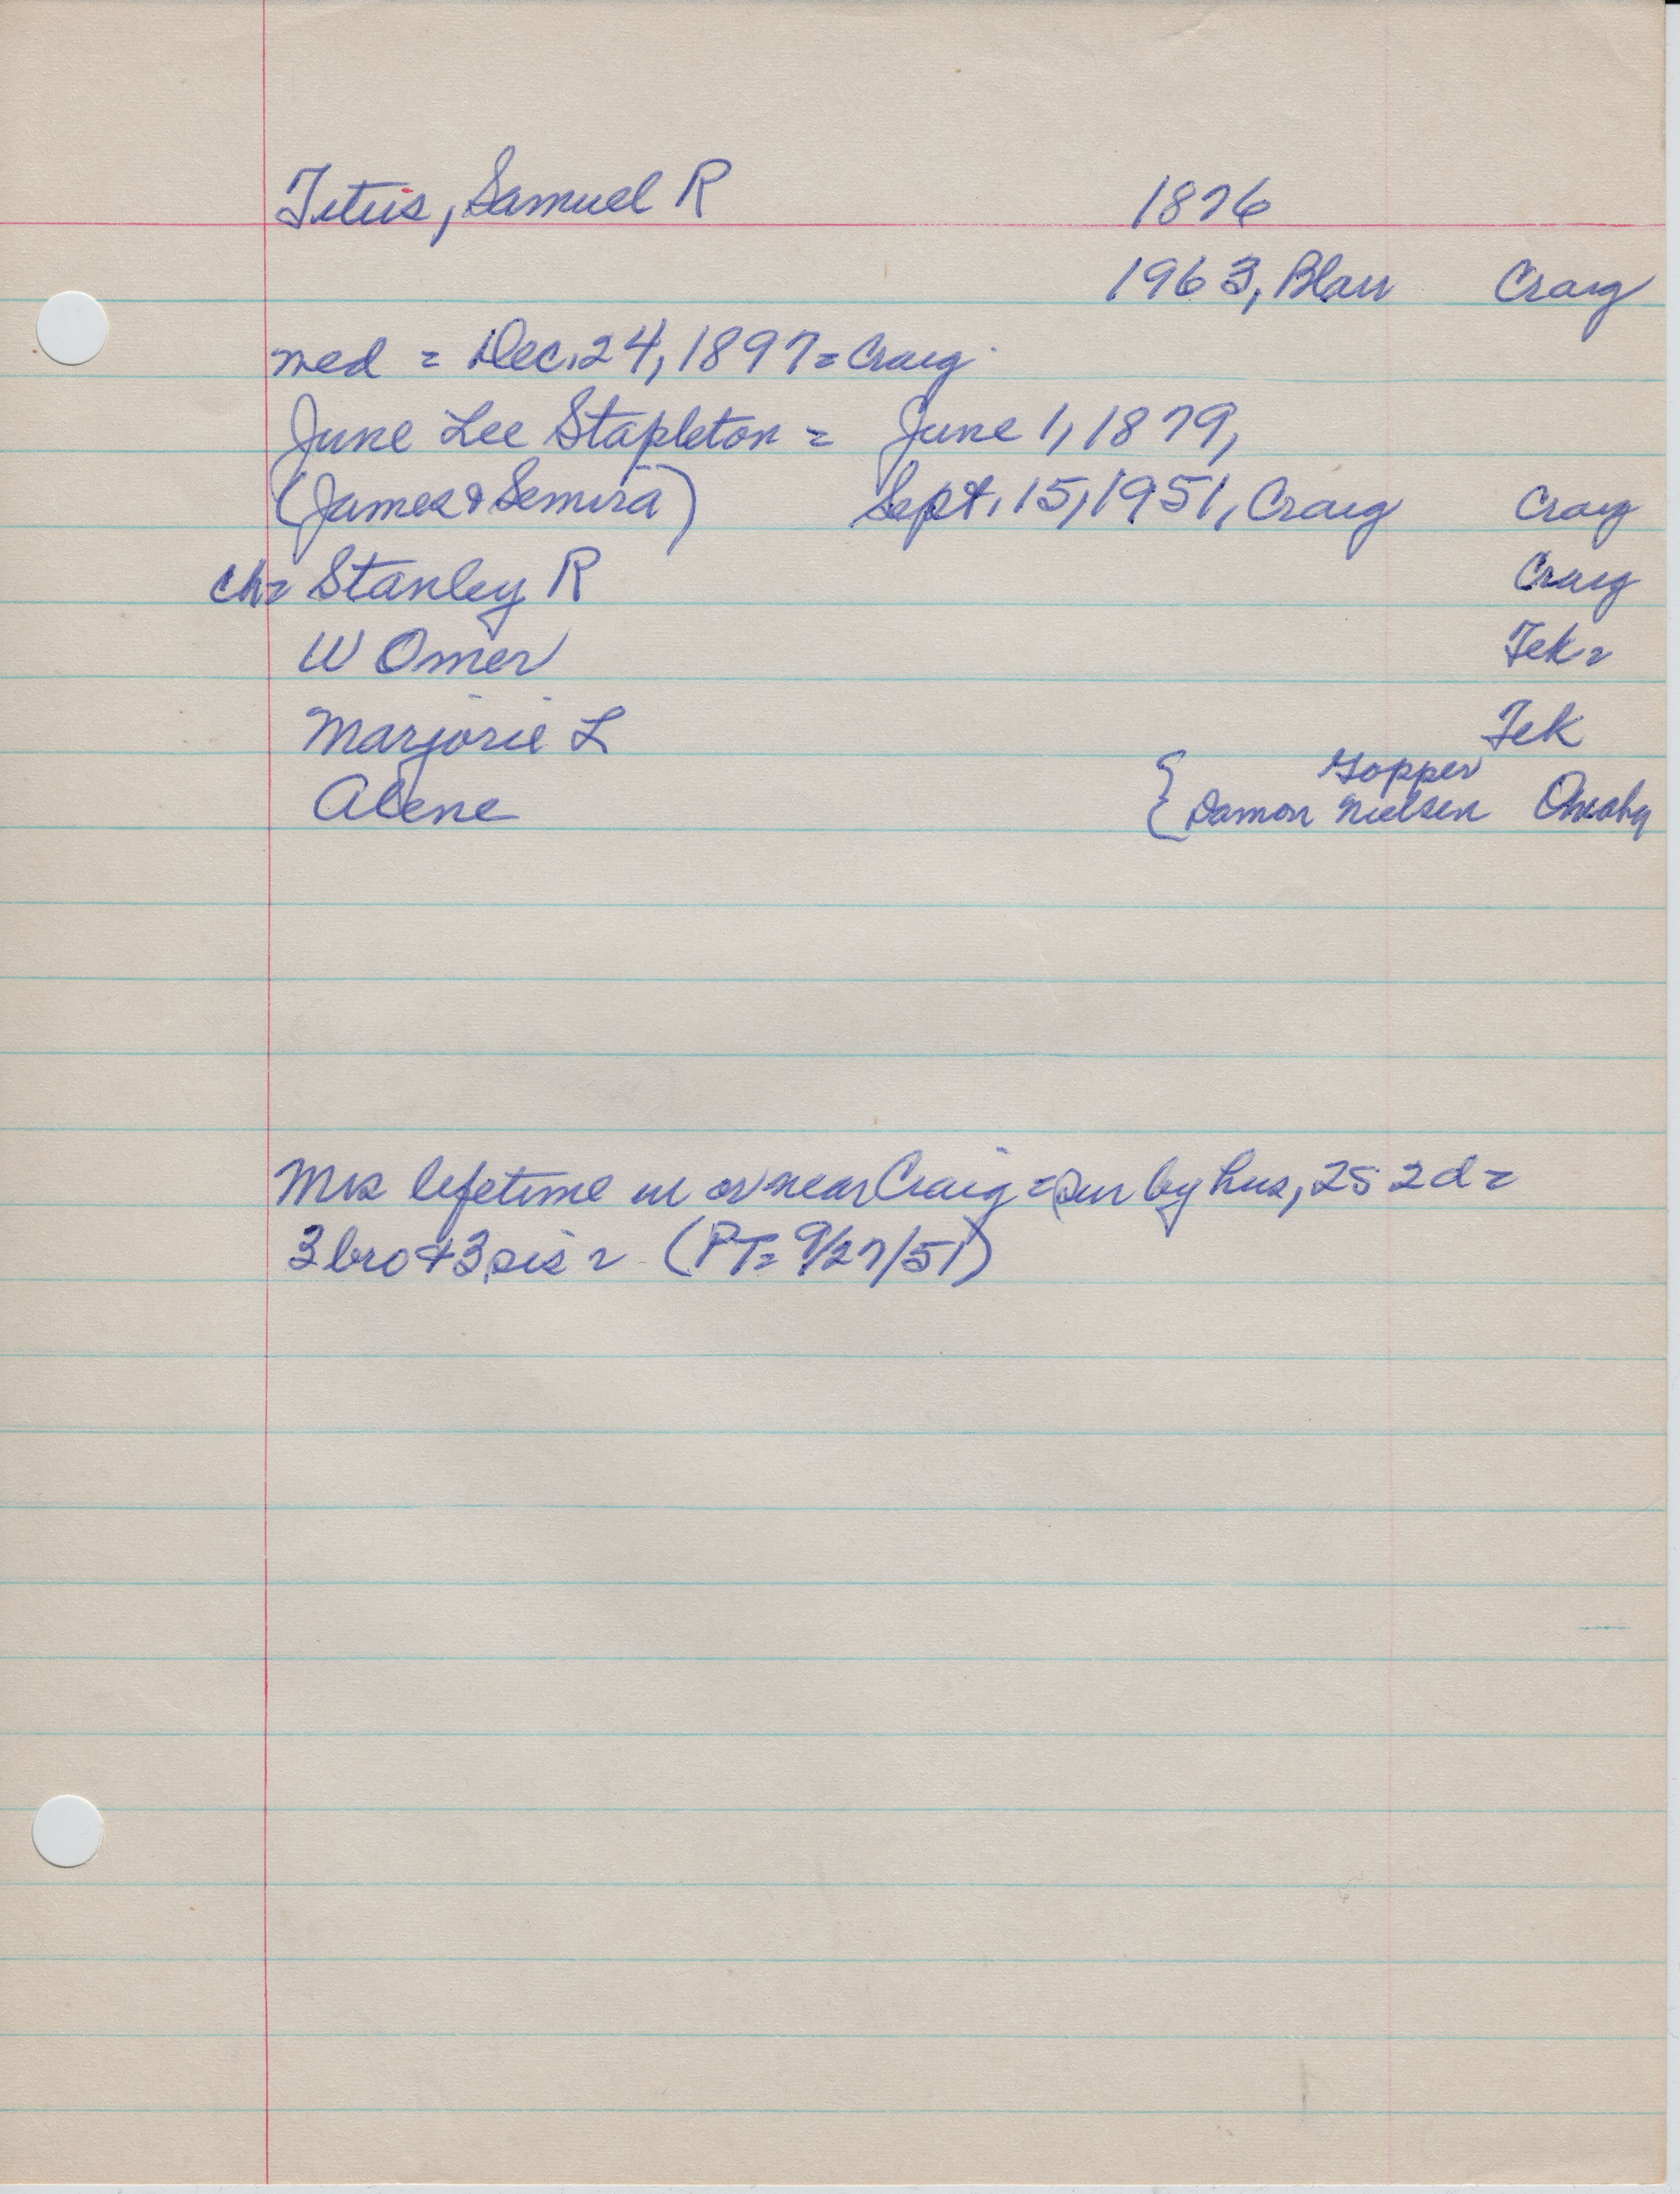 Titus, Samuel R 1876
1963, Blair Craig
med = Dec. 24, 1897 = Craig
June Lee Stapleton = June 1, 1879,
(James & Semira) Sept. 15, 1951, Craig Craig
ch= Stanley R Craig
W Omer Tek=
Marjorie L Tek
Alene { Hopper
Damon Nielsen Omaha
Mrs lifetime in or near Craig = sur by hus, 2s 2d =
3 bro + 3 sis = (PT= 9/27/51)